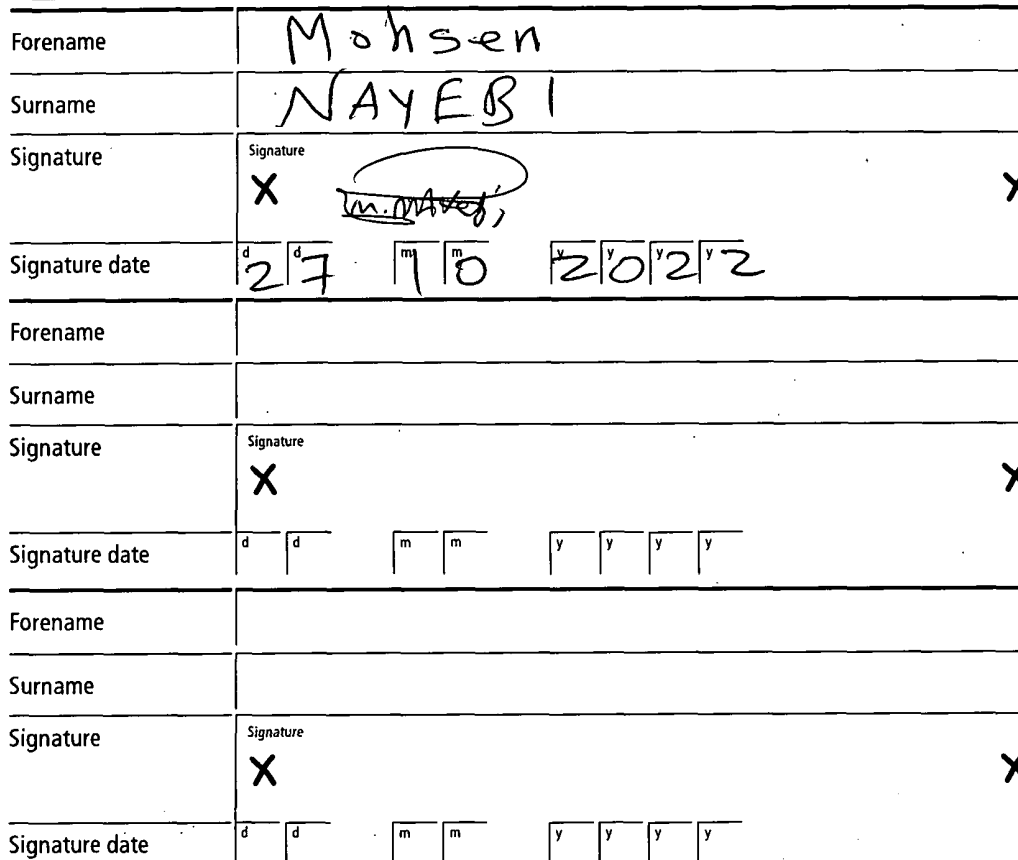 Forename Mohsen
Surname NAYEBI
Signature Signature
X X
Signature date d d m m y y y y
27 10 2022
Forename
Surname
Signature Signature
X X
Signature date d d m m y y y y
Forename
Surname
Signature Signature
X X
Signature date d d m m y y y y